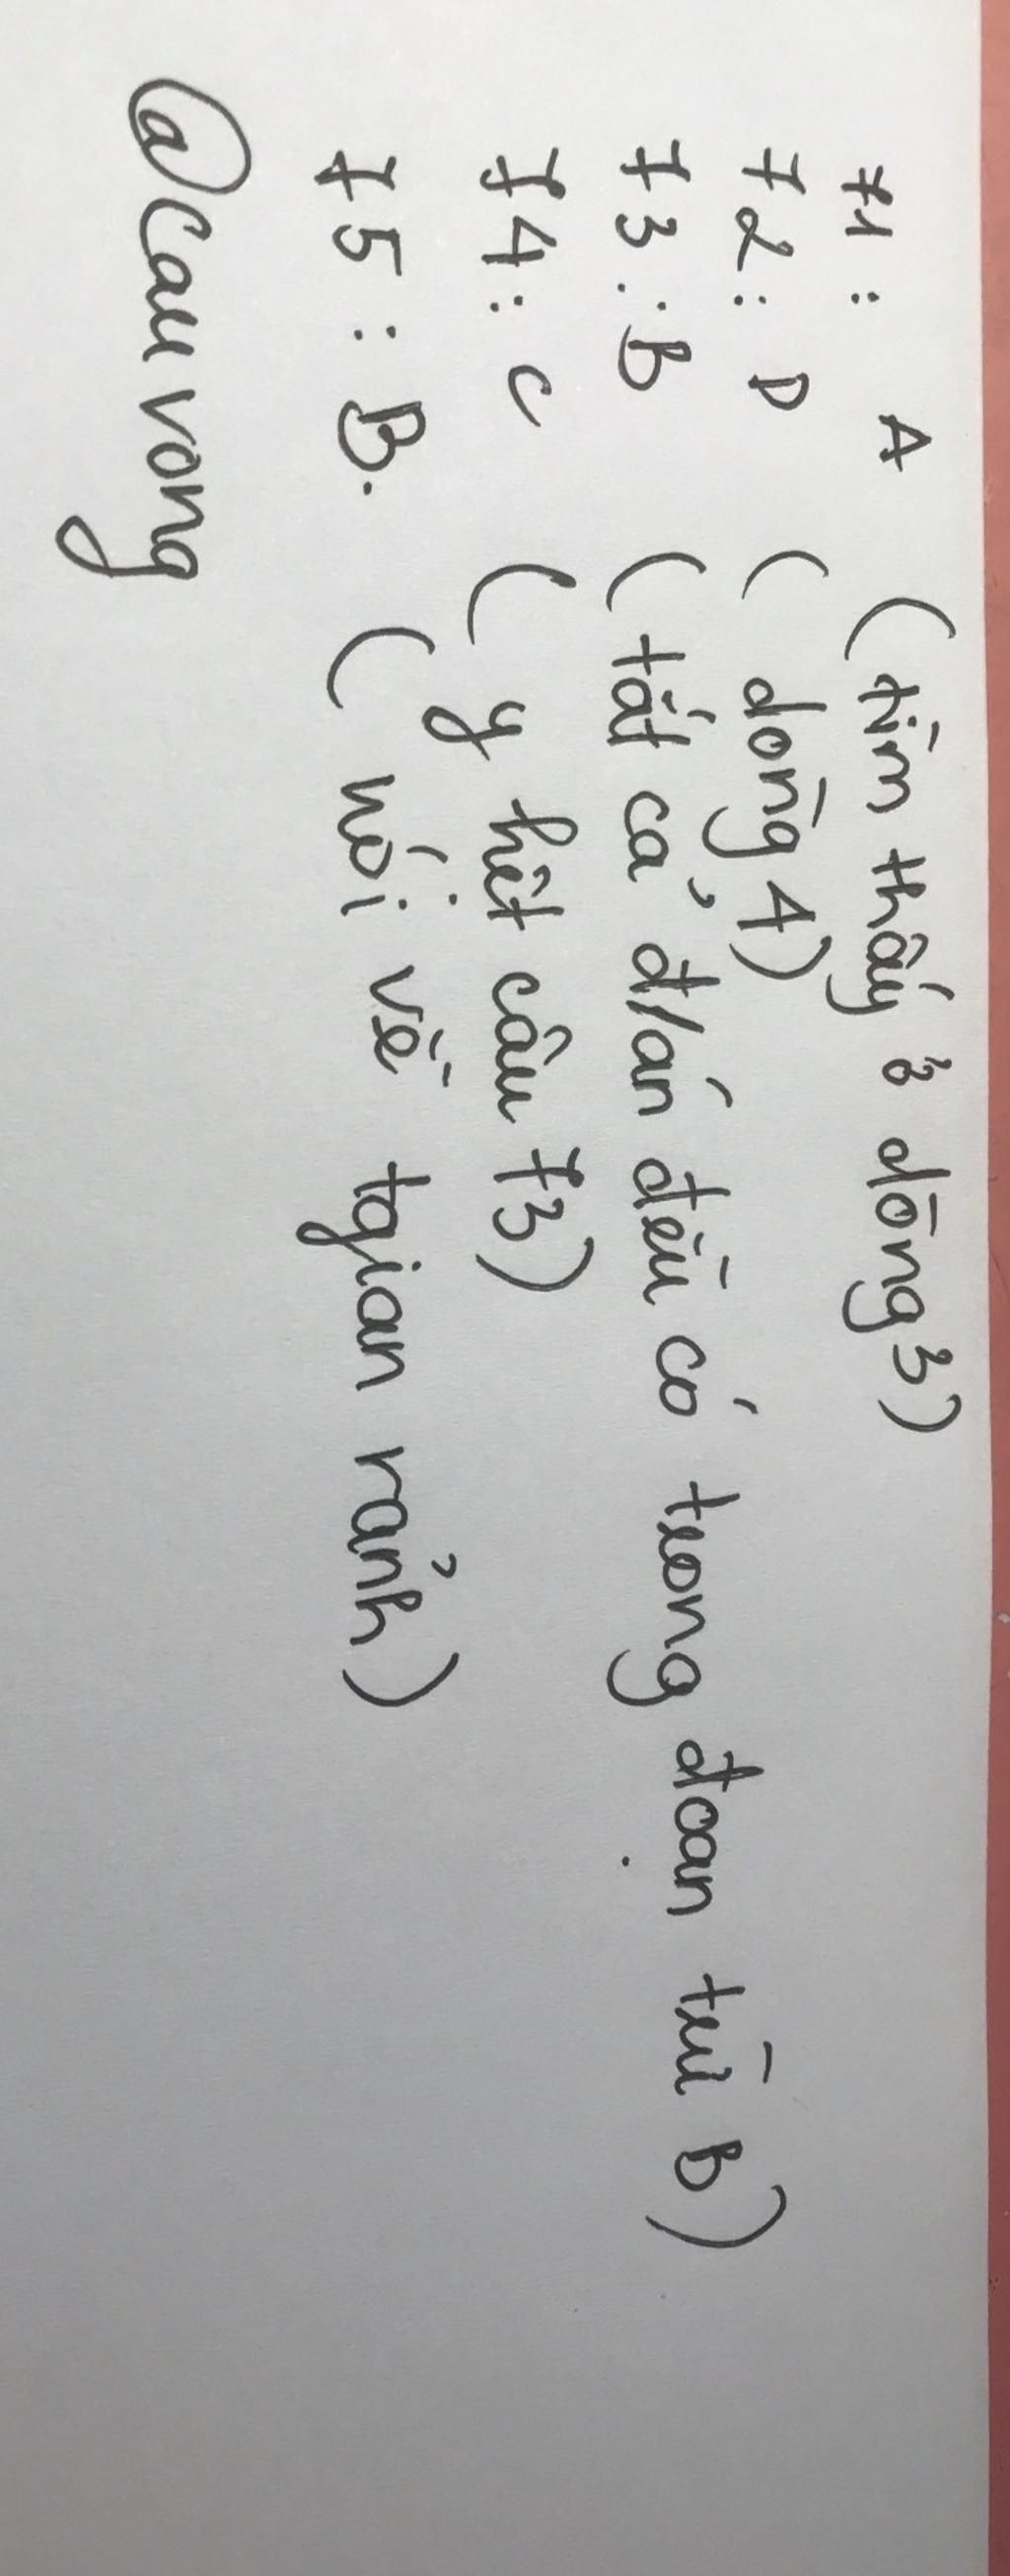 71: A (tìm thấy ở dòng 3)
72: D (dòng 4)
73: B (tất cả đ/án đều có trong đoạn trừ B)
74: C (y hệt câu 73)
75: B. (nói về tgian rảnh)
@cauvong